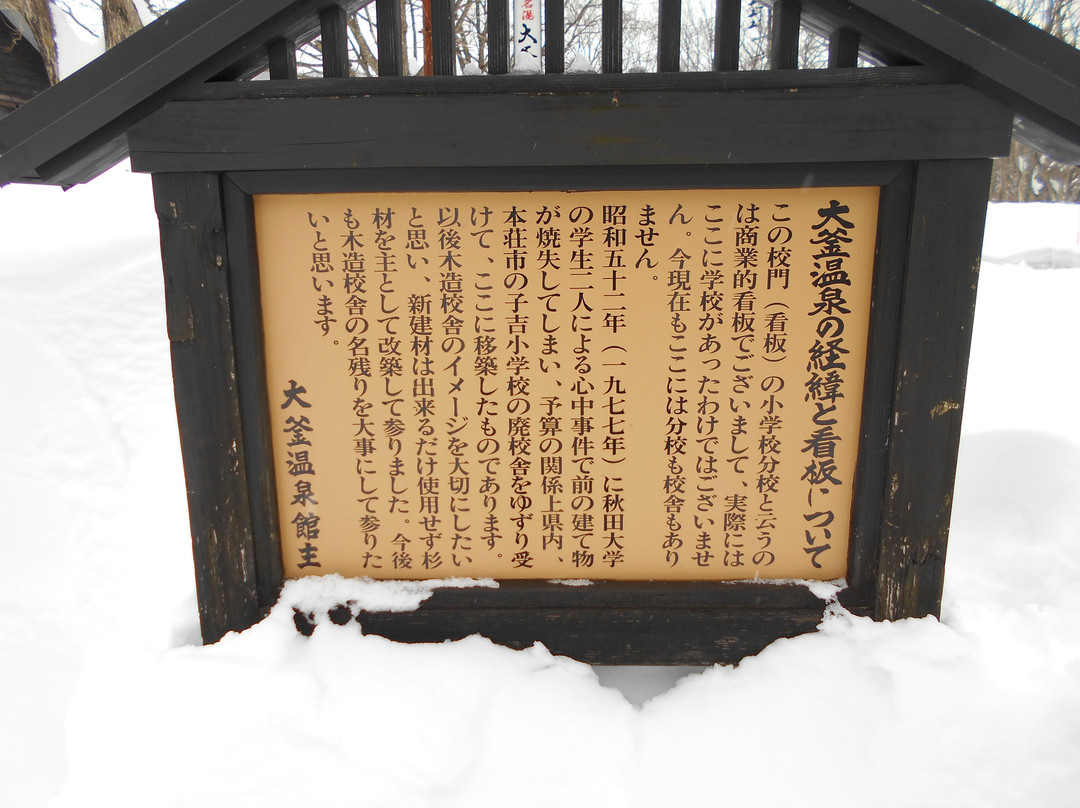 大釜温泉の経緯と看板について
この校門（看板）の小学校分校と云うの
は商業的看板でございまして、実際には
ここに学校があったわけではございませ
ん。今現在もここには分校も校舎もあり
ません。
昭和五十二年（一九七七年）に秋田大学
の学生二人による心中事件で前の建て物
が焼失してしまい、予算の関係上県内、
本荘市の子吉小学校の廃校舎をゆずり受
けて、ここに移築したものであります。
以後木造校舎のイメージを大切にしたい
と思い、新建材は出来るだけ使用せず杉
材を主として改築して参りました。今後
も木造校舎の名残りを大事にして参りた
いと思います。
大釜温泉館主